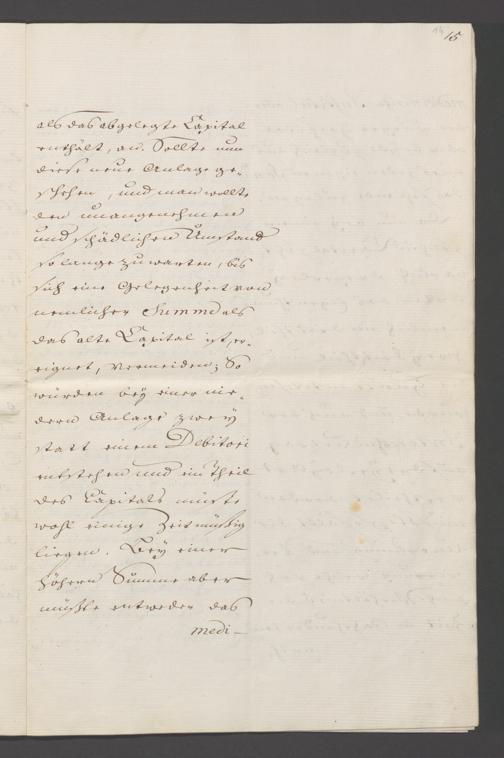 14 15
als das abgelegte Capital
enthält, an. Sollte nun
diese neue Anlage ge-
schehen, und man wollte
den unangenehmen
und schädlichen Umstand
so lange zu warten, bis
sich eine Gelegenheit von
nemlicher Summe als
das alte Capital ist, er-
eignet, vermeiden; So
würden bey einer nie-
dern Anlage zwey
statt einem Debitori
entstehen und ein Theil
des Capitals müste
wohl einige Zeit müßig
liegen. Bey einer
höhern Summe aber
müßte entweder das
medi-